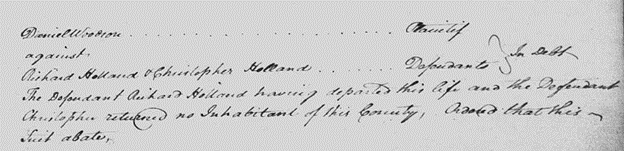 Daniel Woodson . . . . . . . . . . . . . . . . . . . . . . Plaintif
against
Richard Holland & Christopher Holland . . . . . . Defendants } In Debt
The Defendant Richard Holland having departed this life and the Defendant
Christopher returned no Inhabitant of this County, Ordered that this
Suit abate,